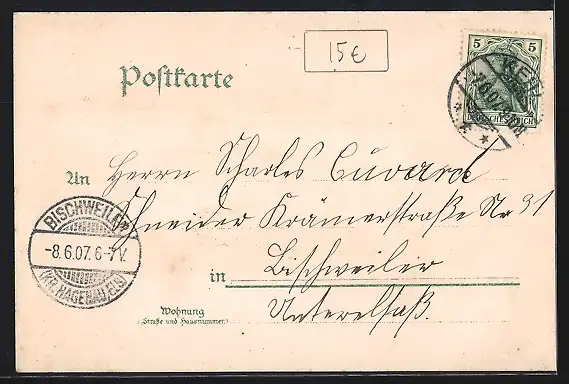 15€
Postkarte
5 5
DEUTSCHES REICH
KEHL
An Herrn Scharles Cuvard
Schneider Krämerstraße Nr 31
BISCHWEILER
-8.6.07.6-7V.
(KR. HAGENAU, ELS)
in Bischweiler
Unterelsaß
Wohnung
(Straße und Hausnummer)